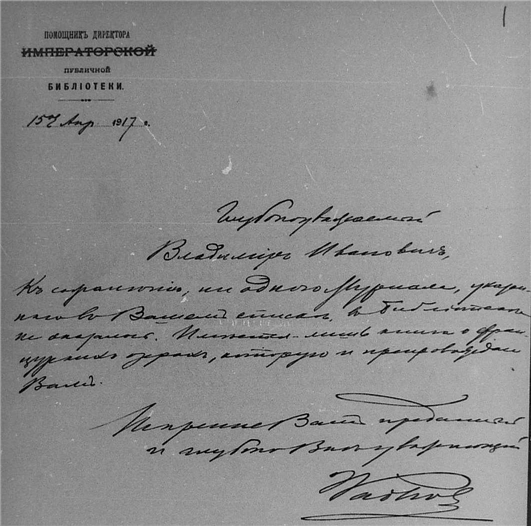 1
ПОМОЩНИКЪ ДИРЕКТОРА
ИМПЕРАТОРСКОЙ
ПУБЛИЧНОЙ
БИБЛІОТЕКИ.
15 Апр 1917 г.
Глубокоуважаемый
Владимиръ Ивановичъ,
Къ сожалѣнію, ни одного журнала, указан-
наго въ Вашемъ спискѣ, въ Библіотекѣ
не оказалось. Имѣется лишь книга о фран-
цузскихъ , которую и препровождаю
Вамъ.
Искренне Вамъ преданный
и глубоко Васъ уважающій